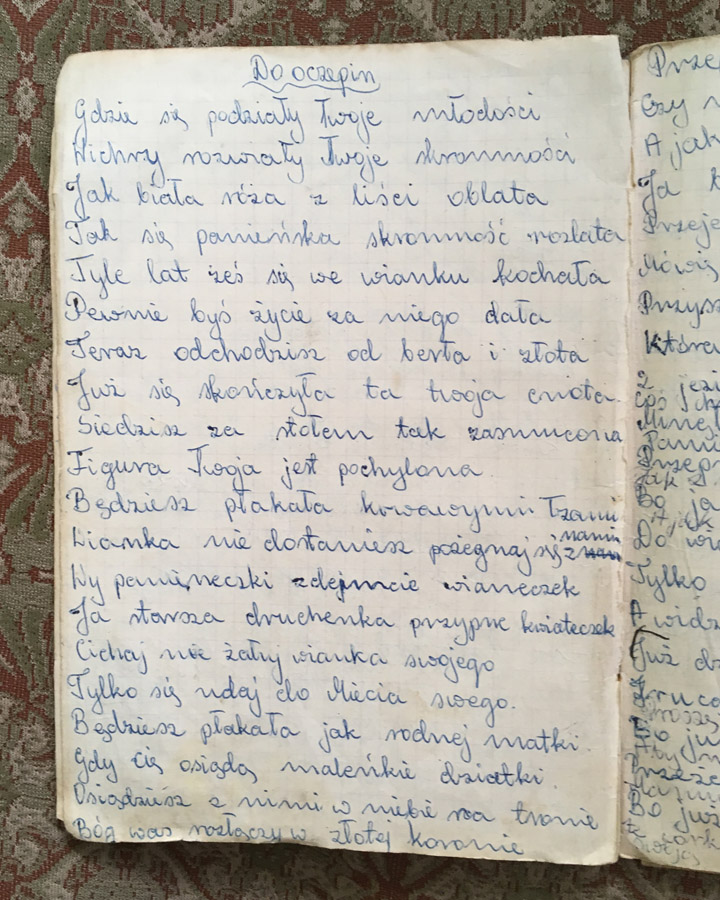 Do oczepin
Gdzie się podziały Twoje młodości
Wichry rozwiały Twoje skromności
Jak biała róża z liści oblata
Tak się panieńska skromność rozlata
Tyle lat żeś się we wianku kochała
Pewnie byś życie za niego dała
Teraz odchodzisz od berła i złota
Już się skończyła ta twoja cnota.
Siedzisz za stołem tak zasmucona
Figura Twoja jest pochylona
Będziesz płakała krwawymi łzami
Wianka nie dostaniesz pożegnaj się z nami
Wy panięneczki zdejmcie wianeczek
Ja starsza druchenka przypnę kwiateczek
Cichaj nie żałuj wianka swojego
Tylko się udaj do Miecia swego.
Będziesz płakała jak rodnej matki.
Gdy Cię osiądą maleńkie dziatki.
Osiądziesz z nimi w niebie na tronie
Bóg was rozłączy w złotej koronie
Czy
A jak
Ja
Mówię
Która
Bo ja
Tylko
A widz
Już dz
Bo ju
Bo już